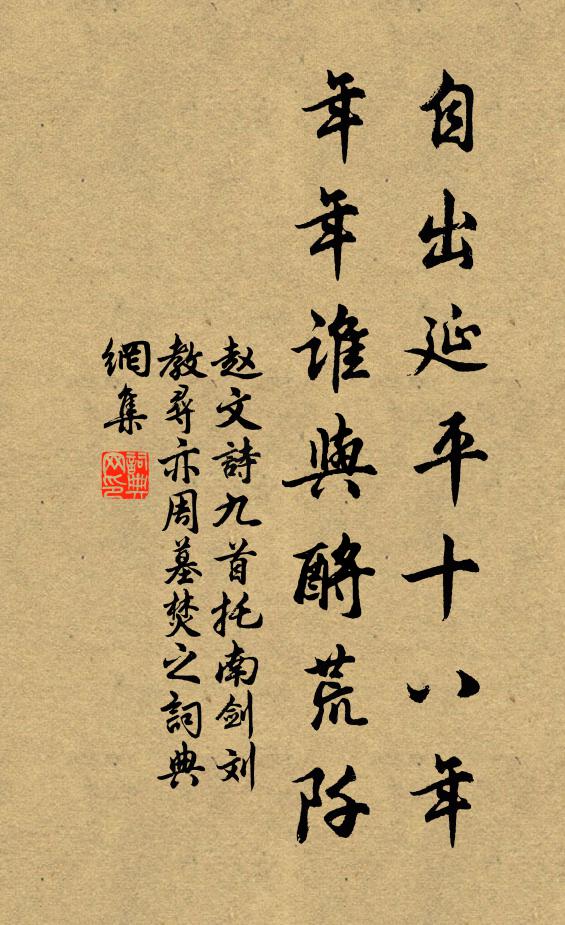 自出延平十八年
年年誰與酹荒阡
赵文詩九首托南剑刘
教尋亦周墓焚之詞典
網集
詞典網印